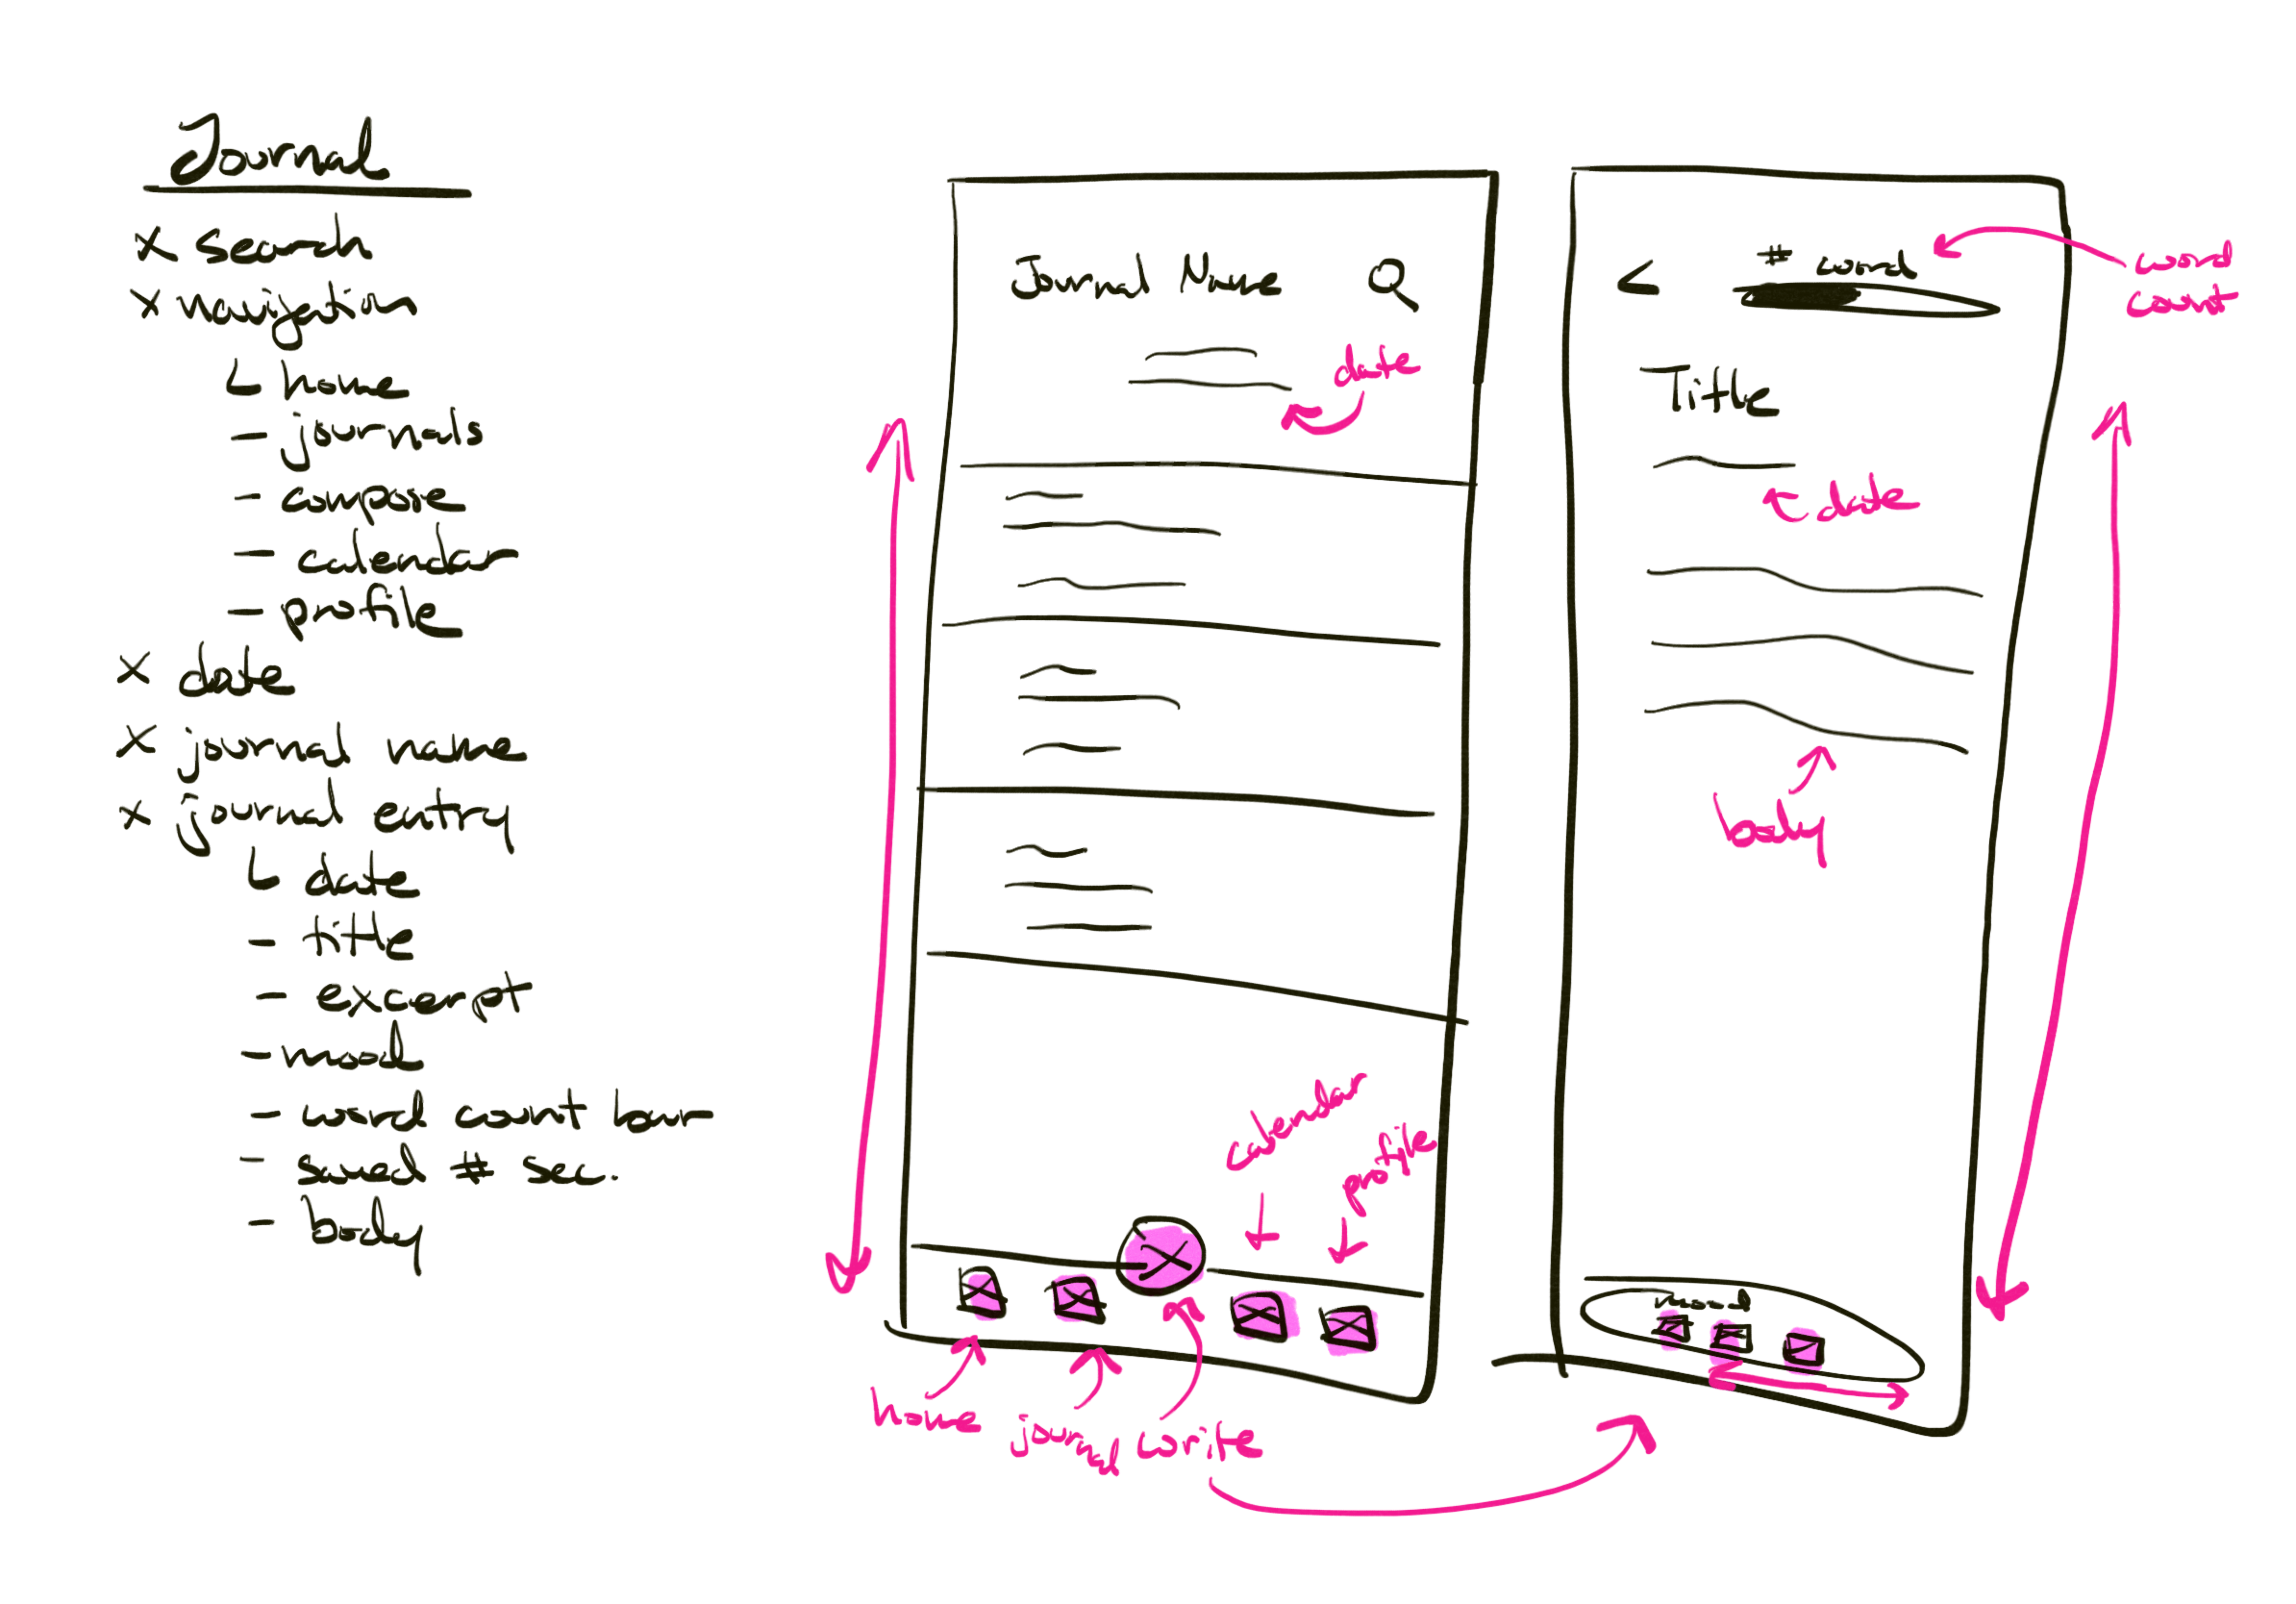 Journal
x search
x navigation
└ home
- journals
- compose
- calendar
- profile
x date
x journal name
x journal entry
└ date
- title
- excerpt
- mood
- word count bar
- saved # sec.
- body
Journal Name
date
calendar
profile
home journal write
< # word
word
count
Title
date
body
mood